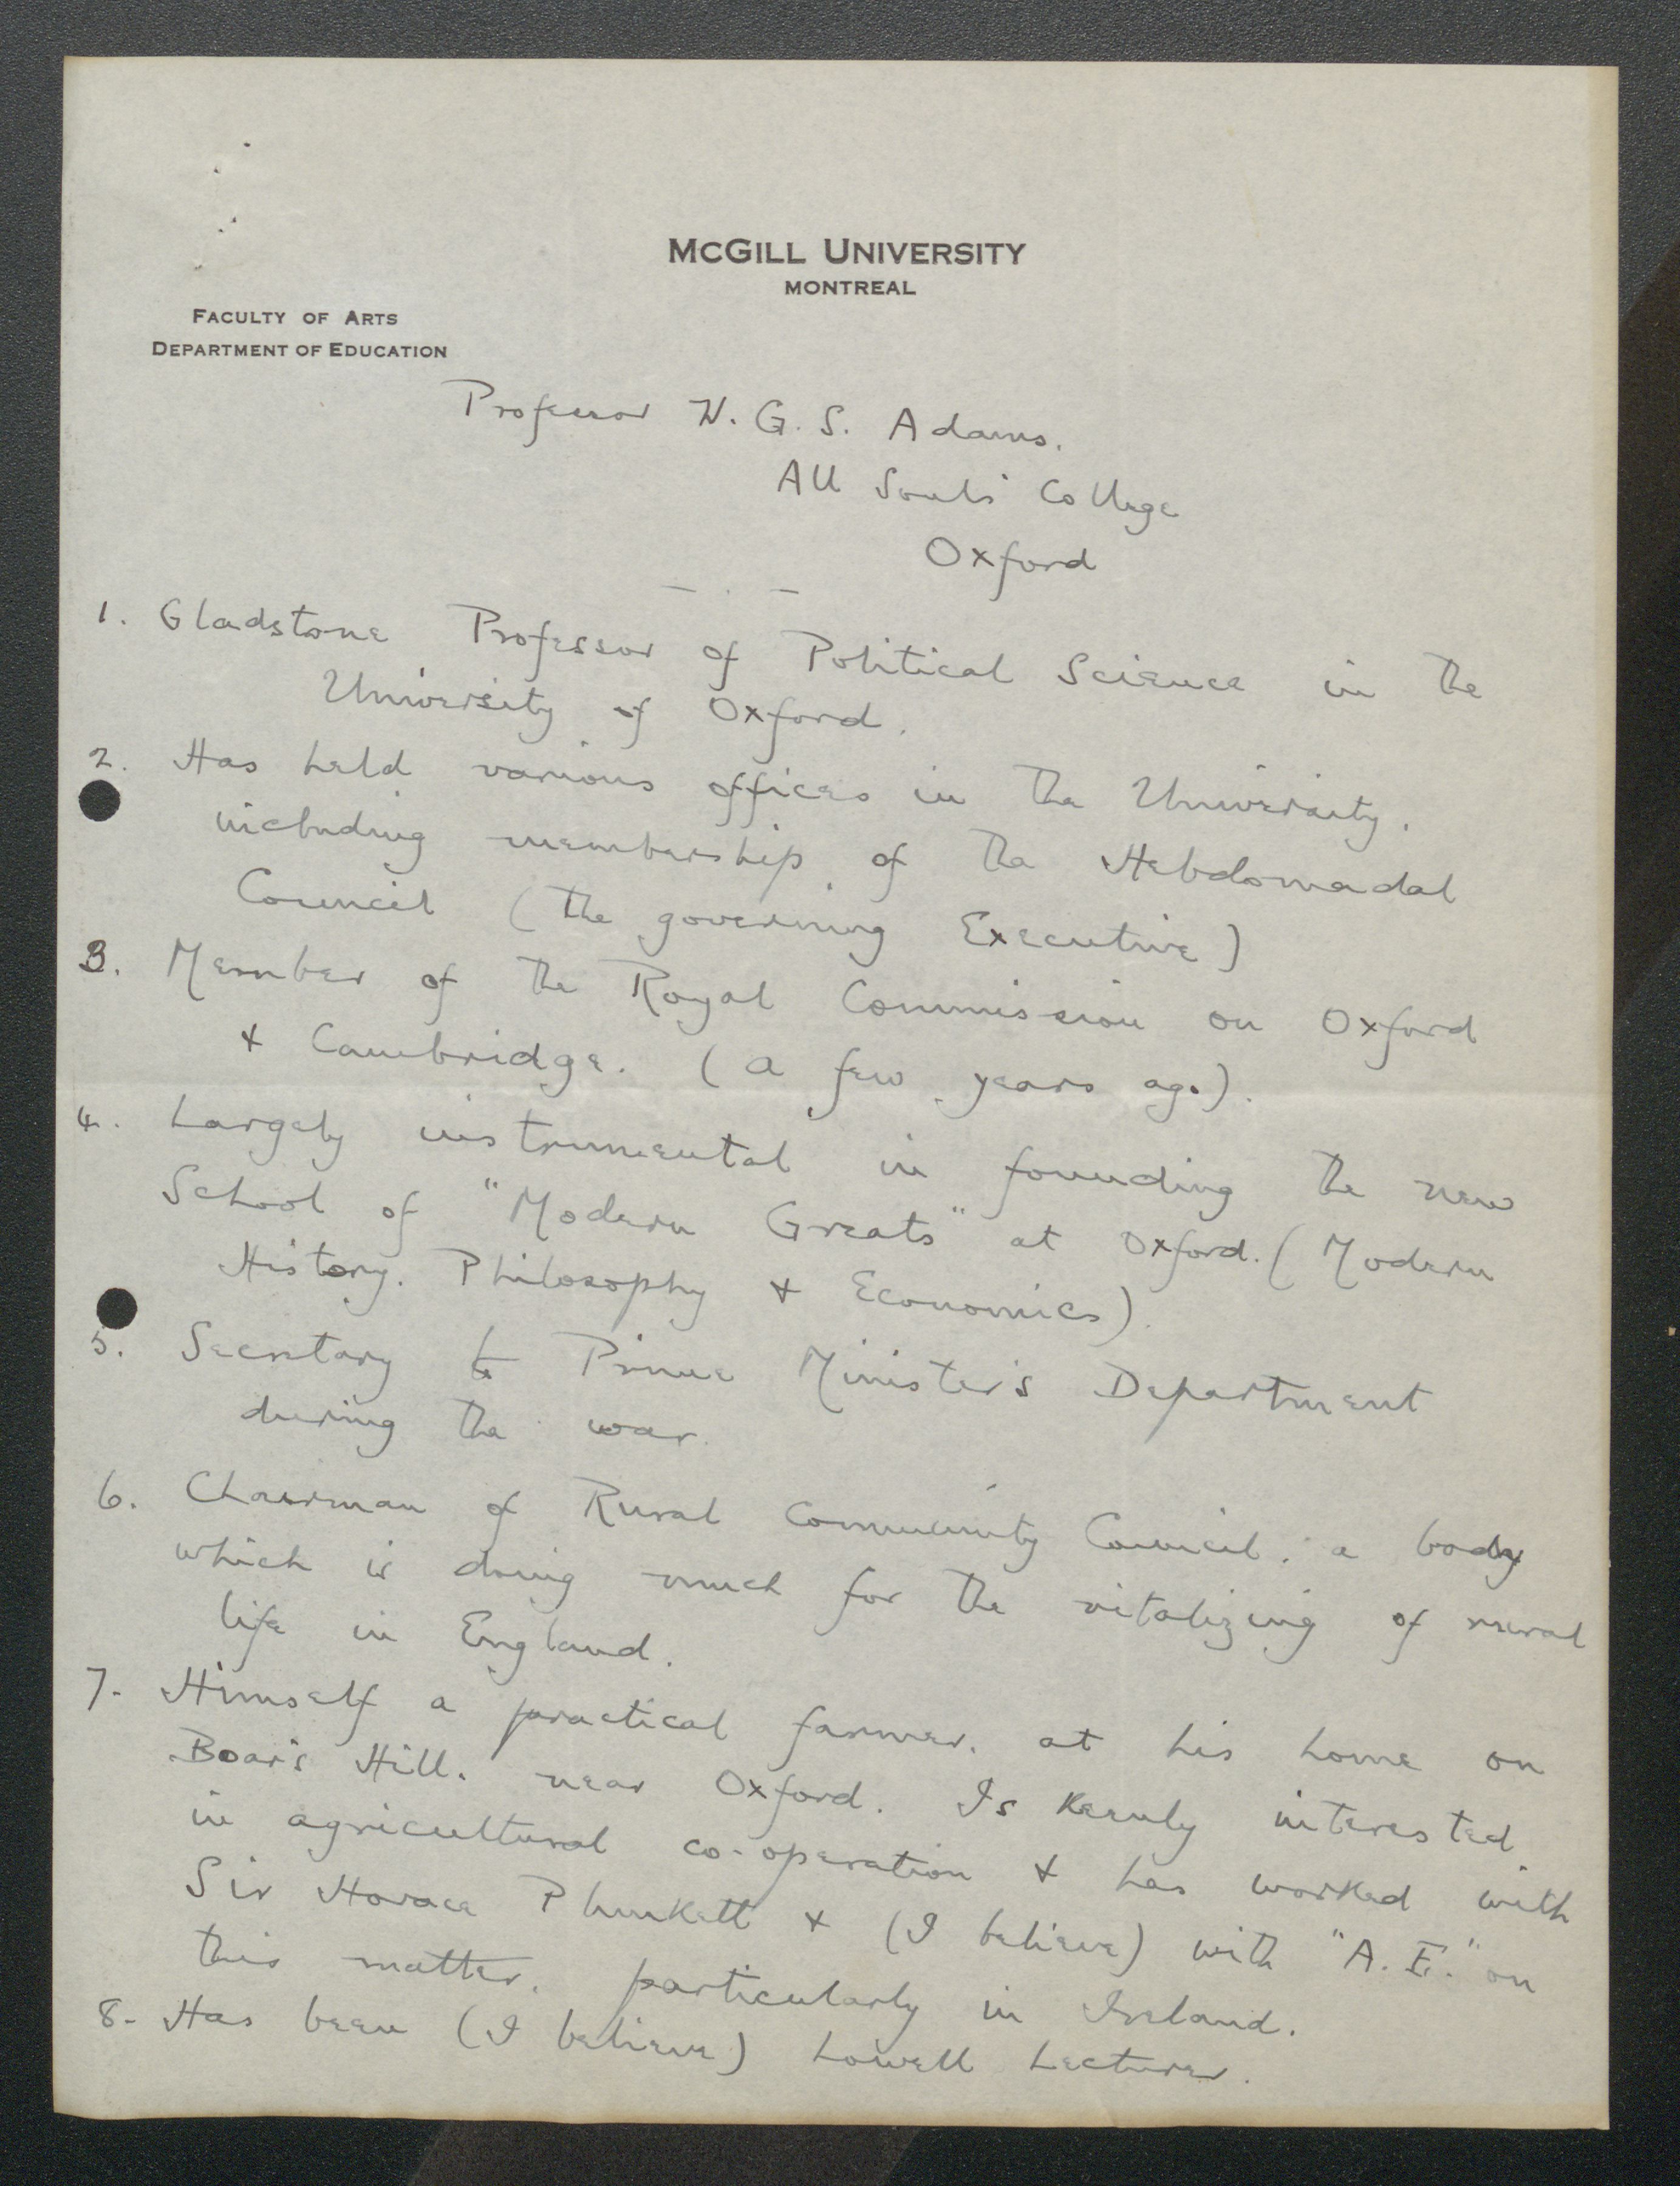 McGill University
Montreal
Faculty of Arts
Department of Education
Professor W. G. S. Adams.
All Souls' College
Oxford
1. Gladstone Professor of Political Science in the
University of Oxford.
2. Has held various offices in the University,
including membership of the Hebdomadal
Council (the governing Executive)
3. Member of the Royal Commission on Oxford
& Cambridge. (a few years ago).
4. Largely instrumental in founding the new
School of "Modern Greats" at Oxford. (Modern
History, Philosophy & Economics).
5. Secretary to Prime Minister's Department
during the war.
6. Chairman of Rural Community Council, a body
which is doing much for the vitalizing of rural
life in England.
7. Himself a practical farmer, at his home on
Boar's Hill, near Oxford. Is keenly interested
in agricultural co-operation & has worked with
Sir Horace Plunkett & (I believe) with "A.E." on
this matter, particularly in Ireland.
8. Has been (I believe) Lowell Lecturer.